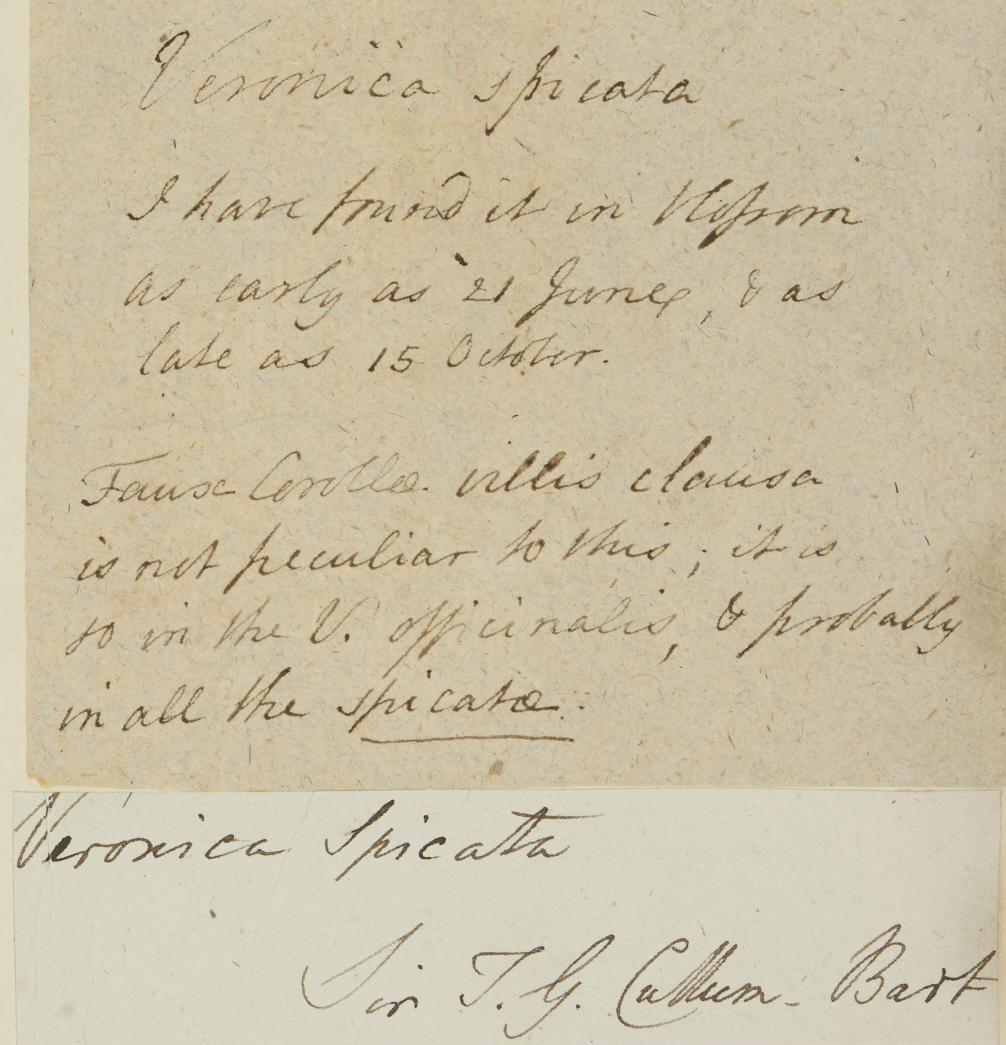 Veronica spicata
I have found it in blossom
as early as 21 June, & as
late as 15 October.
Faux Corollæ villis clausa
is not peculiar to this; it is
so in the V. officinalis, & probably
in all the spicatæ.
Veronica Spicata
Sir T. G. Cullum - Bart